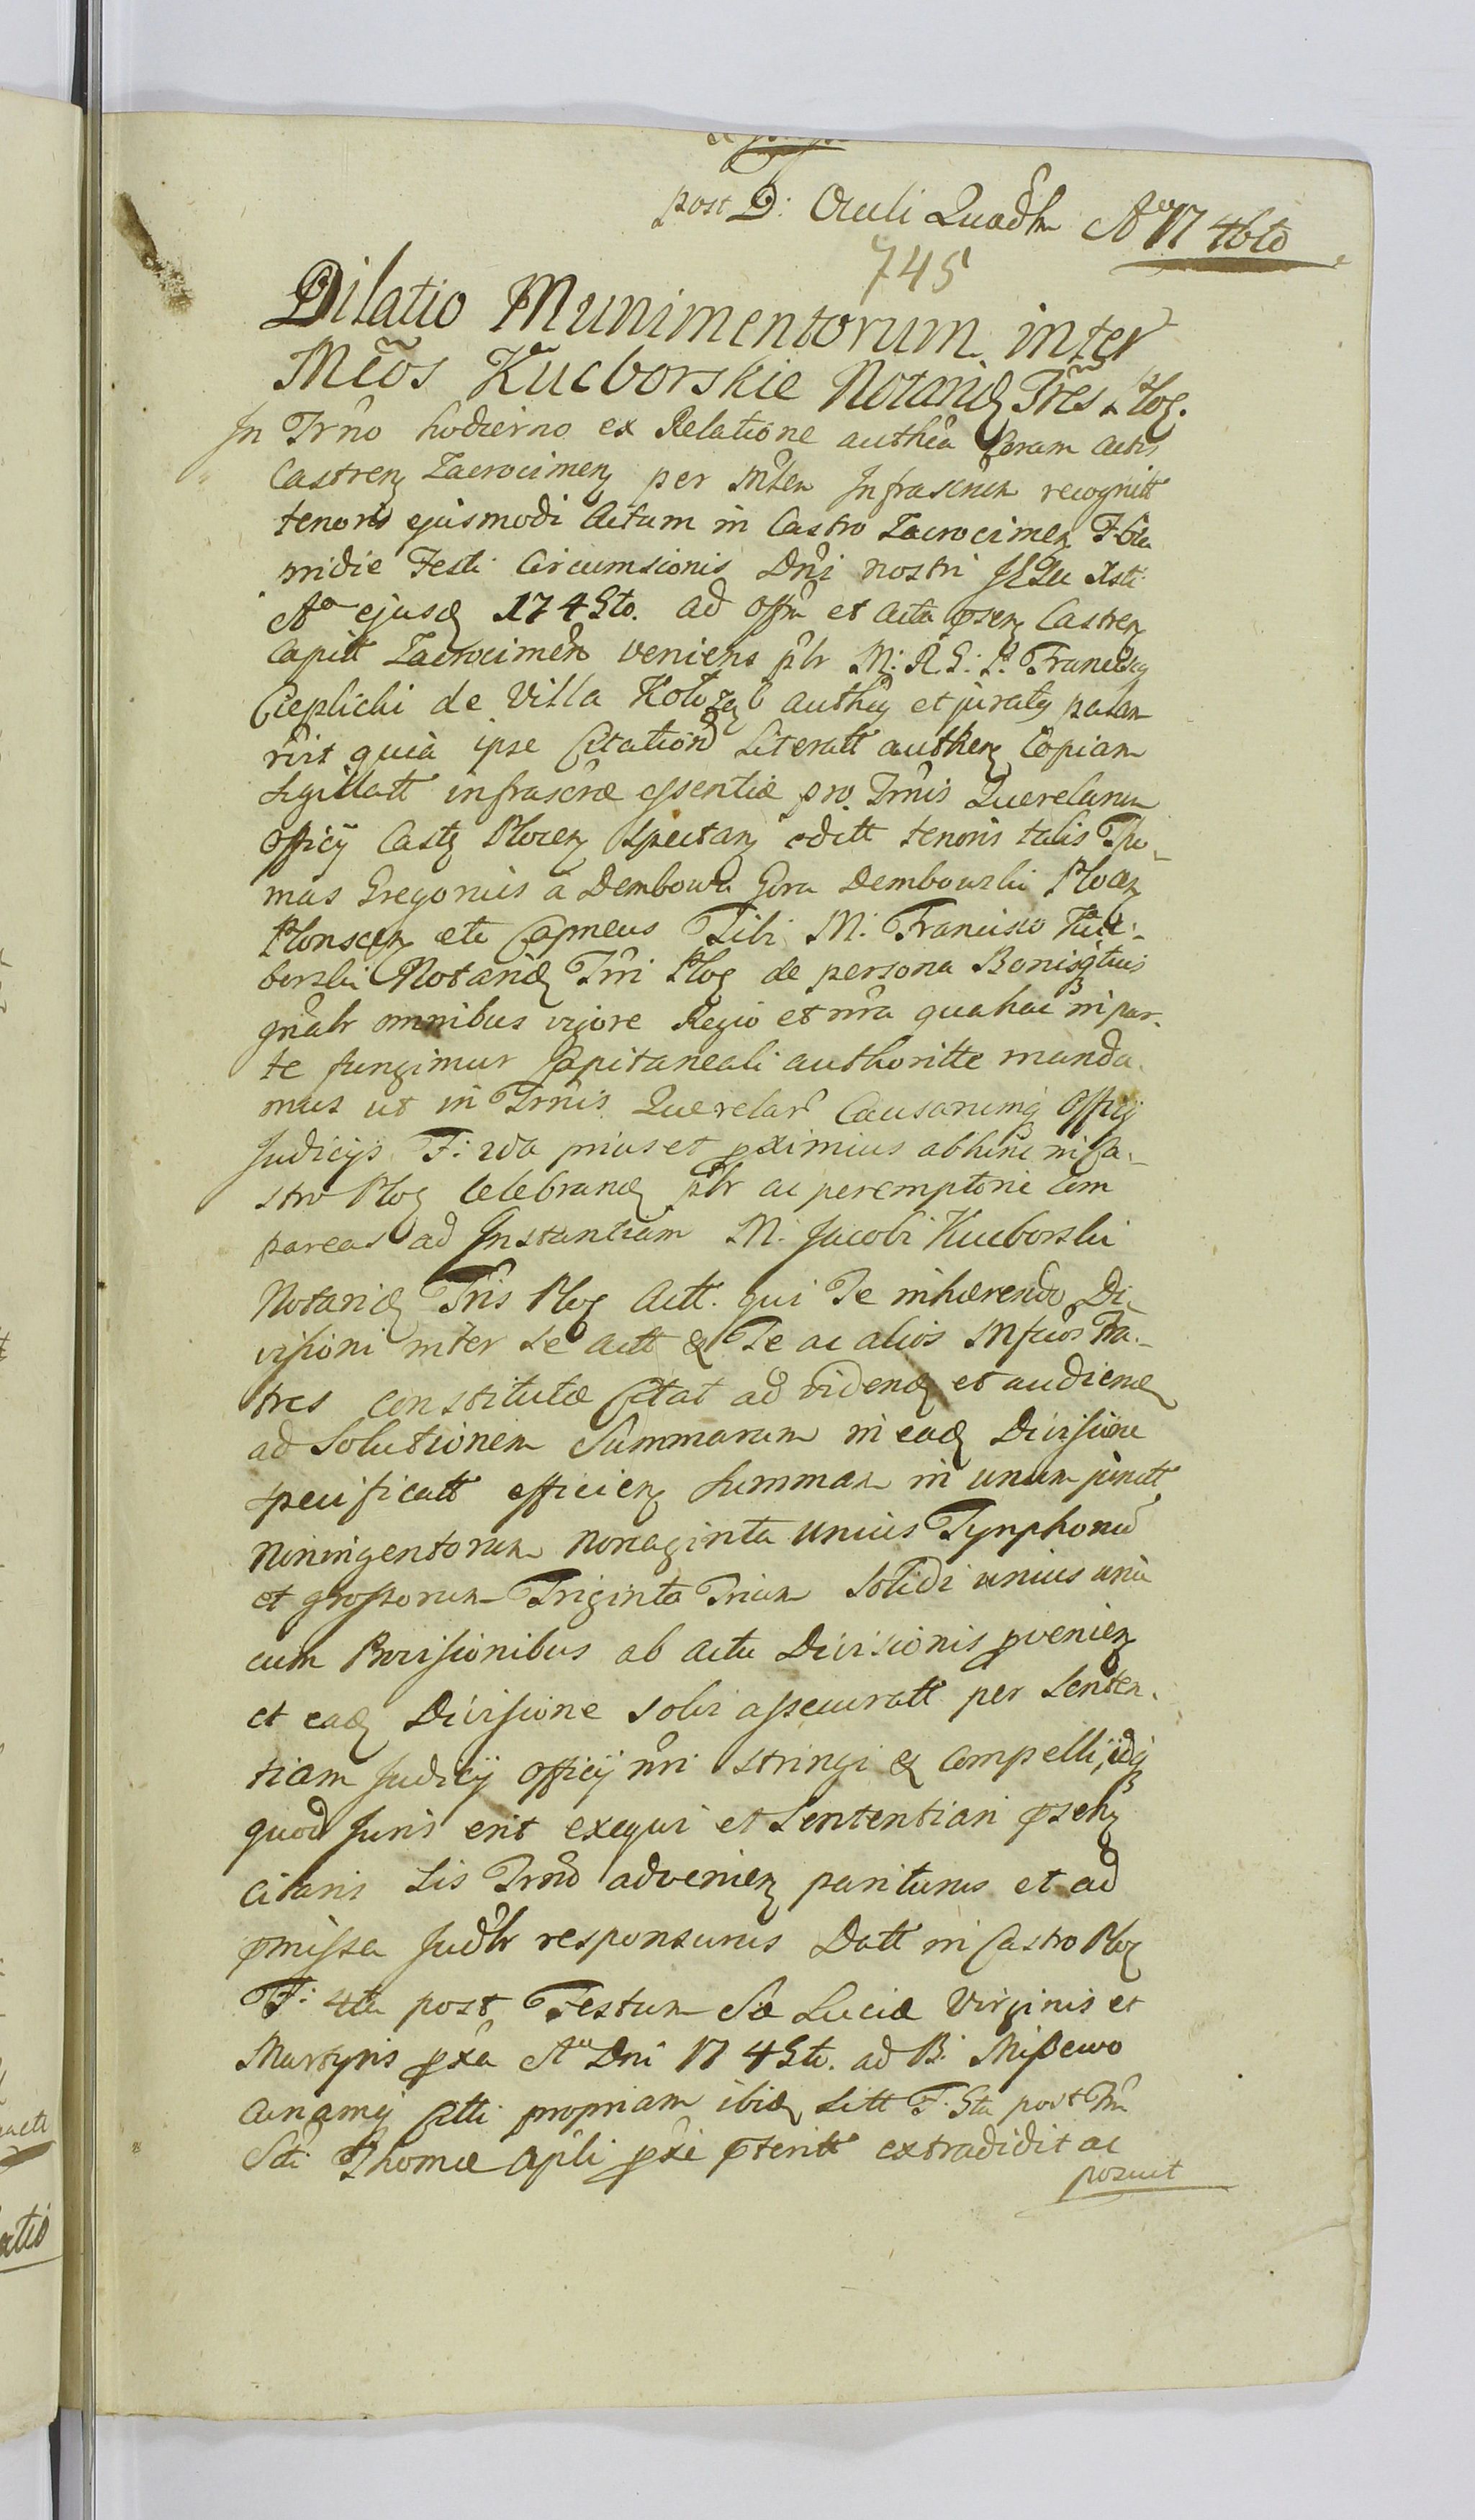 post D: Oculi Quadrm Ao 1746to
745
Dilatio Munimentorum inter
Mcos Kucborskie Notarid Tres Ploc.
In Trno hodierno ex Relatione authca Coram actis
Castren Zacrocimen per Mlem Infrascrum recognitt
tenoris ejusmodi Actum in Castro Zacrocimen F: 6ta
pridie Festi Circumsionis Dni nostri JESu Xsti
Ao ejusd 1745to. ad Offm et acta psen Castren
Capitt Zacrocimen veniens plr M: R. G: P. Franciscq
Cieplicki de Villa authq et juratq palam
rcvit quia ipse Citationu Literatt authen Copiam
Sigillatt infrascrae essentiae pro Trnis Querelarum
Officij Cast Plocen Spectan editt tenoris talis Tho-
mas Gregorius a Dembowa Gora Dembowski Plocen
Plonscen etc Capneus Tibi M: Francisco Kuc-
borski Notarid Trri Ploc de persona Bonisq tuis
gnalr omnibus vigore Regio et nra qua hac in par-
te fungimur Capitaneali authoritte manda-
mus ut in Trnis Querelar Causarumq Officij
Judicijs F: 2da prius et pximius abhinc in Ca-
stro Ploc celebrand plr ac peremptorie com
pareas ad Instantiam M. Jacobi Kucborski
Notarid Tris Ploc Actt. qui Te inhaerendo Di-
visioni inter se Actt & Te ac alios Mfcos Fra-
tres constitutae Citat ad vidend et audiend
ad Solutionem Summarum in ead Divisione
specificatt efficien Summam in unum junctt
Noningentorum Nonaginta unius Tynphonu
et grossorum Triginta Trium Solidi unius una
cum Provisionibus ab actu Divisionis pvenien
et ead Divisione solvi assecuratt per Senten-
tiam Judicij Officij nri stringi & compelli, idq
quod Juris erit exequi et Sententiari psehq
citaris Sis Trno advenien pariturus et ad
pmissa Judlr responsurus Datt in Castro Ploc
F: 4ta post Festum Sae Luciae Virginis et
Martyris pxa Ao Dni 1745to. ad B: Mißewo
Citti propriam ibid Sitt F: 5ta post Fm
Sti Thomae Apli pxe pteritt extradidit ac
posuit